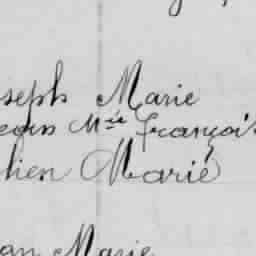 seph Marie
Mie françois
lien Marie
an Marie